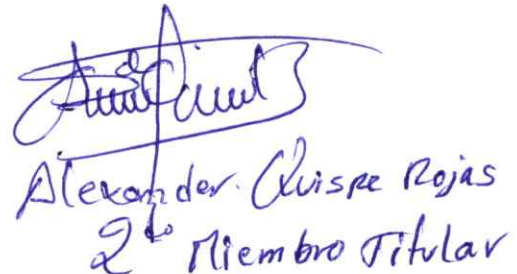 Alexander. Quispe Rojas
2do Miembro Titular